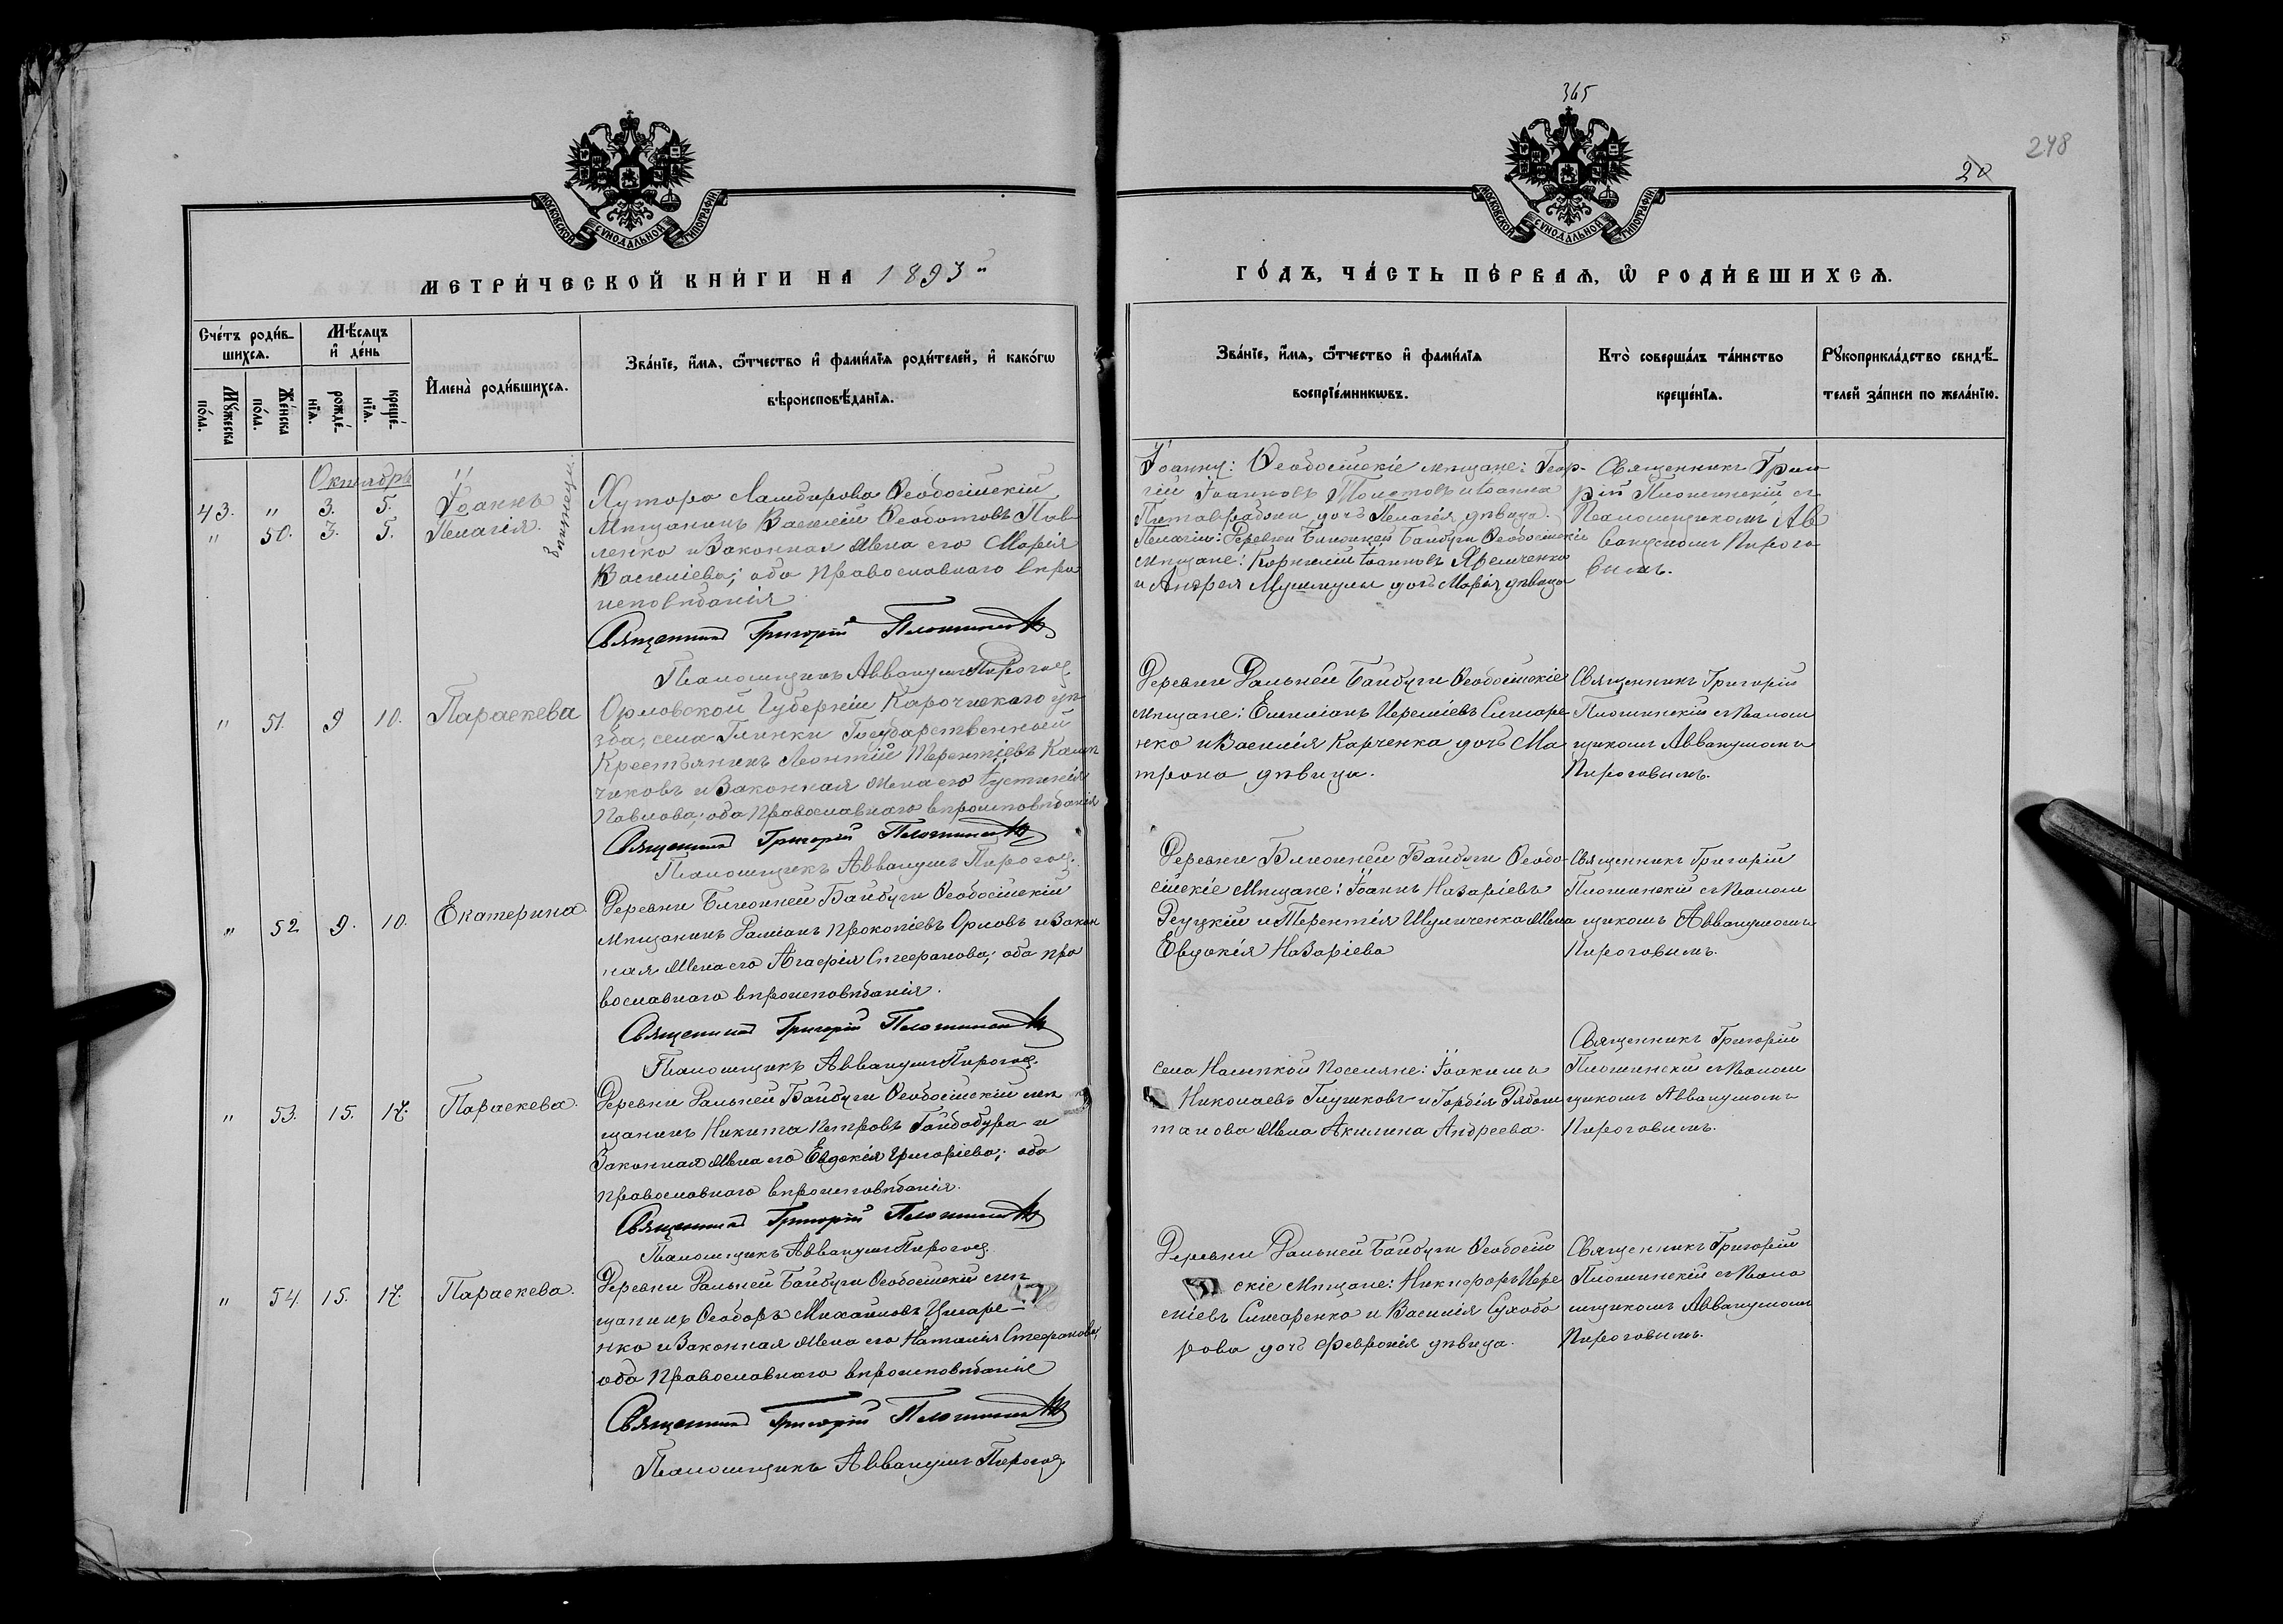 365
248
20
МОСКОВСКОЙ СѴНОДАЛЬНОЙ ТИПОГРАФІИ
МОСКОВСКОЙ СѴНОДАЛЬНОЙ ТИПОГРАФІИ
МЕТРИ́ЧЕСКОЙ КНИ́ГИ НА 1893й
ГО́ДЪ, ЧА́СТЬ ПЕ́РВАѦ, Ѽ РОДИ́ВШИХСѦ.
Сче́тъ роди́в-
шихсѧ.
Мꙋ́жеска по́ла.
Же́нска по́ла.
Мѣ́сѧцъ
и҆ де́нь
рожде́-
нїѧ.
креще́-
нїѧ.
И҆мена̀ роди́вшихсѧ.
Зва́нїе, и҆́мѧ, ѻ҆́тчество и҆ фами́лїѧ роди́телей, и҆ како́гѡ
вѣроисповѣ́данїѧ.
Зва́нїе, и҆́мѧ, ѻ҆́тчество и҆ фами́лїѧ
воспрїе́мникѡвъ.
Кто̀ соверша́лъ та́инство
креще́нїѧ.
Рꙋкоприкла́дство свидѣ́-
телей за́писи по жела́нїю.
Октябрь
43. " 3. 5. Іоаннъ
" 50. 3. 5. Пелагія.
близнецы
Хутора Ламбирова Ѳеодосійскій
Мѣщанинъ Василій Ѳеодотовъ Пав-
ленко и Законная Жена его Марія
Василіева; оба Православнаго вѣро
исповѣданія
Священникъ Григорій
Псаломщикъ Аввакумъ Пирогов
Іоанну: Ѳеодосійскіе мѣщане: Геор-
гій Іоанновъ Толстовъ и Іоанна
дочь Пелагія дѣвица.
Пелагіи: Деревни Ближней Байбуги Ѳеодосійскіе
мѣщане: Корнилій Іоанновъ Яремченко
и Андрея Мушмулы дочь Марія дѣвица
Священникъ Григо
рій съ
Псаломщикомъ Ав
вакумомъ Пирого
вымъ.
" 51. 9 10. Параскева
Орловской Губерніи Карочискаго уѣ
зда, села Глинки Государственный
Крестьянинъ Леонтій Терентіевъ Калит
чиковъ и Законная Жена его Іустинія
Павлова; оба Православнаго вѣроисповѣданія
Священникъ Григорій
Псаломщикъ Аввакумъ Пирогов.
Деревни Дальней Байбуги Ѳеодосійскіе
мѣщане: Емиліанъ Іереміевъ Симаре
нко и Василія Карченка дочь Ма
трона дѣвица.
Священникъ Григорій
съ Псалом
щикомъ Аввакумомъ
Пироговымъ.
" 52 9. 10. Екатерина
Деревни Ближней Байбуги Ѳеодосійскій
Мѣщанинъ Даміанъ Прокопіевъ Орловъ и Закон
ная Жена его Агафія Стефанова; оба пра
вославнаго вѣроисповѣданія.
Священникъ Григорій
Псаломщикъ Аввакумъ Пирогов.
Деревни Ближней Байбуги Ѳеодо-
сійскіе Мѣщане: Іоаннъ Назаріевъ
Деуцкій и Терентія Шумиченка Жена
Евдокія Назаріева
Священникъ Григорій
съ Псалом
щикомъ Аввакумомъ
Пироговымъ.
" 53. 15. 17. Параскева.
Деревни Дальней Байбуги Ѳеодосійскій мѣ
щанинъ Никита Петровъ Гайдабура и
Законная Жена его Евдокія Григоріева; оба
православнаго вѣроисповѣданія.
Священникъ Григорій
Псаломщикъ Аввакумъ Пирогов.
Села Насыпкой Поселяне: Іоакимъ
Николаевъ Глушковъ и Гордія Рябош
танова Жена Акилина Андреева.
Священникъ Григорій
съ Псалом
щикомъ Аввакумомъ
Пироговымъ.
" 54. 15. 17. Параскева.
Деревни Дальней Байбуги Ѳеодосійскій мѣ
щанинъ Ѳеодоръ Михайловъ Цымаре-
нко и Законная Жена его Наталія Стефанова,
оба Православнаго вѣроисповѣданія
Священникъ Григорій
Псаломщикъ Аввакумъ Пирогов.
Деревни Дальней Байбуги Ѳеодосій
скіе Мѣщане: Никифоръ Іере
міевъ Симаренко и Василія Сухобо
рова дочь Февронія дѣвица.
Священникъ Григорій
съ Псало
мщикомъ Аввакумомъ
Пироговымъ.